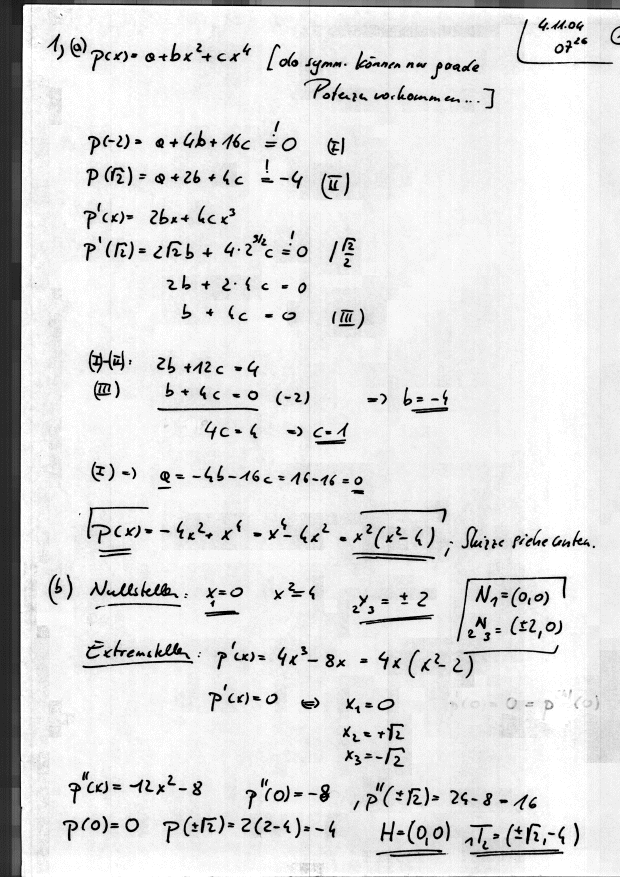 4.11.04
07 26
1, (a) p(x) = a + bx² + cx⁴ [da symm. können nur gerade
Potenzen vorkommen...]
p(-2) = a + 4b + 16c =! 0 (I)
p(√2) = a + 2b + 4c =! -4 (II)
p'(x) = 2bx + 4cx³
p'(√2) = 2√2 b + 4·2^3/2 c =! 0 /√2/2
2b + 2·4c = 0
b + 4c = 0 (III)
(I)-(II): 2b + 12c = 4
(III) b + 4c = 0 (-2) => b = -4
4c = 4 => c = 1
(I) => a = -4b - 16c = 16 - 16 = 0
p(x) = -4x² + x⁴ = x⁴ - 4x² = x²(x² - 4) ; Skizze siehe unten.
(b) Nullstellen: x₁ = 0 x² = 4 ₂x₃ = ± 2 N₁ = (0,0)
₂N₃ = (±2,0)
Extremstellen: p'(x) = 4x³ - 8x = 4x(x² - 2)
p'(x) = 0 <=> x₁ = 0
x₂ = +√2
x₃ = -√2
p''(x) = 12x² - 8 p''(0) = -8 , p''(±√2) = 24 - 8 = 16
p(0) = 0 p(±√2) = 2(2-4) = -4 H = (0,0) ₁T₂ = (±√2, -4)